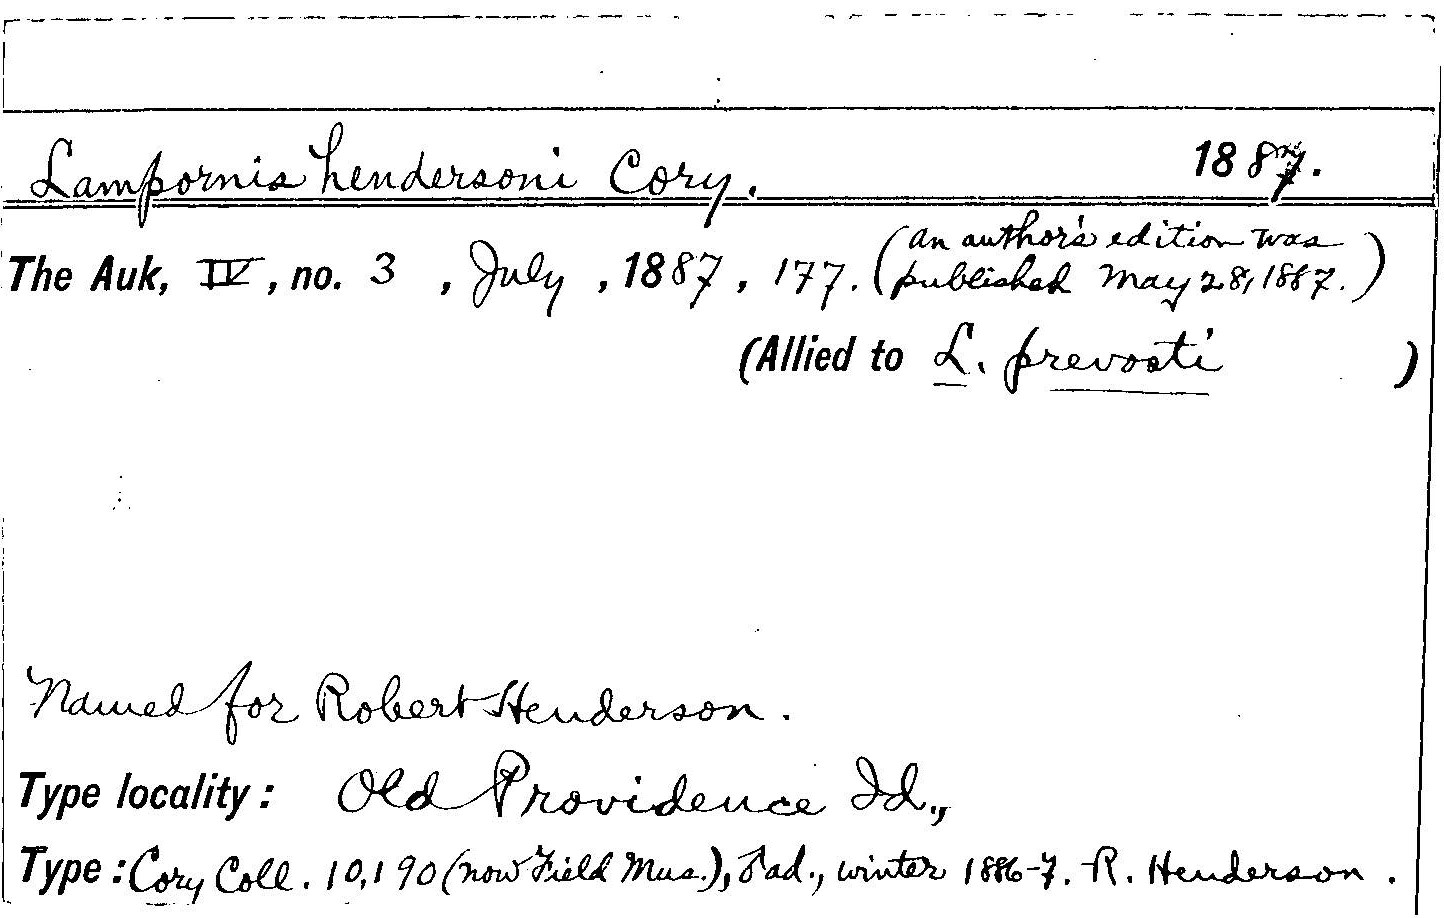 Lampornis hendersoni Cory. 1887.
The Auk, IV, no. 3, July, 1887, 177. (an author's edition was
published May 28, 1887.)
(Allied to L. prevosti)
Named for Robert Henderson.
Type locality: Old Providence Id.,
Type: Cory Coll. 10,190 (now Field Mus.), ♂ ad., winter 1886-7. R. Henderson.